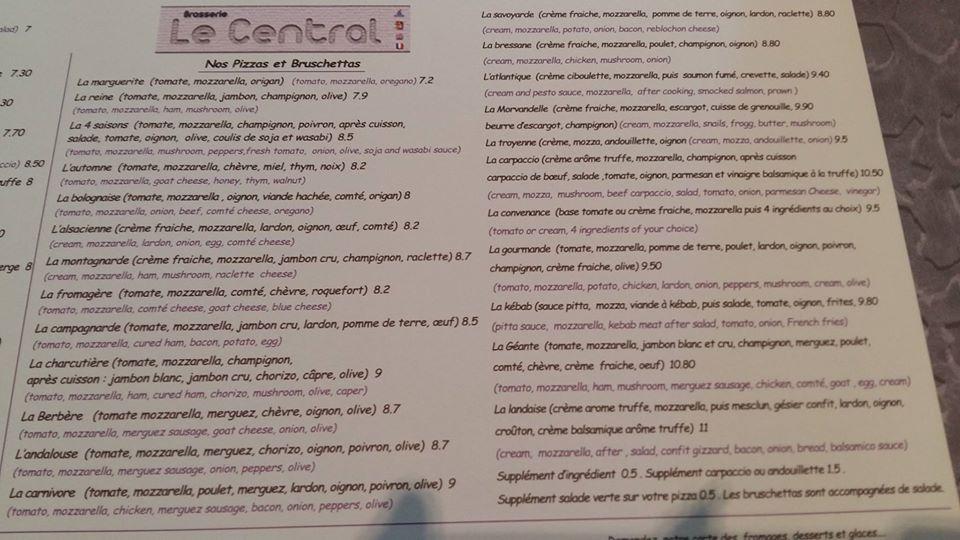 alad) 7
7.30
.30
7.70
ccio) 8.50
uffe 8
0
erge 8
Brasserie
Le Central
Nos Pizzas et Bruschettas
La marguerite (tomate, mozzarella, origan) (tomato, mozzarella, oregano) 7.2
La reine (tomate, mozzarella, jambon, champignon, olive) 7.9
(tomato, mozzarella, ham, mushroom, olive)
La 4 saisons (tomate, mozzarella, champignon, poivron, après cuisson,
salade, tomate, oignon, olive, coulis de soja et wasabi) 8.5
(tomato, mozzarella, mushroom, peppers,fresh tomato, onion, olive, soja and wasabi sauce)
L'automne (tomate, mozzarella, chèvre, miel, thym, noix) 8.2
(tomato, mozzarella, goat cheese, honey, thym, walnut)
La bolognaise (tomate, mozzarella , oignon, viande hachée, comté, origan) 8
(tomato, mozzarella, onion, beef, comté cheese, oregano)
L'alsacienne (crème fraiche, mozzarella, lardon, oignon, œuf, comté) 8.2
(cream, mozzarella, lardon, onion, egg, comté cheese)
La montagnarde (crème fraiche, mozzarella, jambon cru, champignon, raclette) 8.7
(cream, mozzarella, ham, mushroom, raclette cheese)
La fromagère (tomate, mozzarella, comté, chèvre, roquefort) 8.2
(tomato, mozzarella, comté cheese, goat cheese, blue cheese)
La campagnarde (tomate, mozzarella, jambon cru, lardon, pomme de terre, œuf) 8.5
(tomato, mozzarella, cured ham, bacon, potato, egg)
La charcutière (tomate, mozzarella, champignon,
après cuisson : jambon blanc, jambon cru, chorizo, câpre, olive) 9
(tomato, mozzarella, ham, cured ham, chorizo, mushroom, olive, caper)
La Berbère (tomate mozzarella, merguez, chèvre, oignon, olive) 8.7
(tomato, mozzarella, merguez sausage, goat cheese, onion, olive)
L'andalouse (tomate, mozzarella, merguez, chorizo, oignon, poivron, olive) 8.7
(tomato, mozzarella, merguez sausage, onion, peppers, olive)
La carnivore (tomate, mozzarella, poulet, merguez, lardon, oignon, poivron, olive) 9
(tomato, mozzarella, chicken, merguez sausage, bacon, onion, peppers, olive)
La savoyarde (crème fraiche, mozzarella, pomme de terre, oignon, lardon, raclette) 8.80
(cream, mozzarella, potato, onion, bacon, reblochon cheese)
La bressane (crème fraiche, mozzarella, poulet, champignon, oignon) 8.80
(cream, mozzarella, chicken, mushroom, onion)
L'atlantique (crème ciboulette, mozzarella, puis saumon fumé, crevette, salade) 9.40
(cream and pesto sauce, mozzarella, after cooking, smocked salmon, prawn )
La Morvandelle (crème fraiche, mozzarella, escargot, cuisse de grenouille, 9.90
beurre d'escargot, champignon) (cream, mozzarella, snails, frogg, butter, mushroom)
La troyenne (crème, mozza, andouillette, oignon (cream, mozza, andouillette, onion) 9.5
La carpaccio (crème arôme truffe, mozzarella, champignon, après cuisson
carpaccio de bœuf, salade ,tomate, oignon, parmesan et vinaigre balsamique à la truffe) 10.50
(cream, mozza, mushroom, beef carpaccio, salad, tomato, onion, parmesan Cheese, vinegar)
La convenance (base tomate ou crème fraiche, mozzarella puis 4 ingrédients au choix) 9.5
(tomato or cream, 4 ingredients of your choice)
La gourmande (tomate, mozzarella, pomme de terre, poulet, lardon, oignon, poivron,
champignon, crème fraiche, olive) 9.50
(tomato, mozzarella, potato, chicken, lardon, onion, peppers, mushroom, cream, olive)
La kébab (sauce pitta, mozza, viande à kébab, puis salade, tomate, oignon, frites, 9.80
(pitta sauce, mozzarella, kebab meat after salad, tomato, onion, French fries)
La Géante (tomate, mozzarella, jambon blanc et cru, champignon, merguez, poulet,
comté, chèvre, crème fraiche, oeuf) 10.80
(tomato, mozzarella, ham, mushroom, merguez sausage, chicken, comté, goat , egg, cream)
La landaise (crème arome truffe, mozzarella, puis mesclun, gésier confit, lardon, oignon,
croûton, crème balsamique arôme truffe) 11
(cream, mozzarella, after , salad, confit gizzard, bacon, onion, bread, balsamico sauce)
Supplément d'ingrédient 0.5 . Supplément carpaccio ou andouillette 1.5 .
Supplément salade verte sur votre pizza 0.5 . Les bruschettas sont accompagnées de salade.
Demandez notre carte des fromages, desserts et glaces...